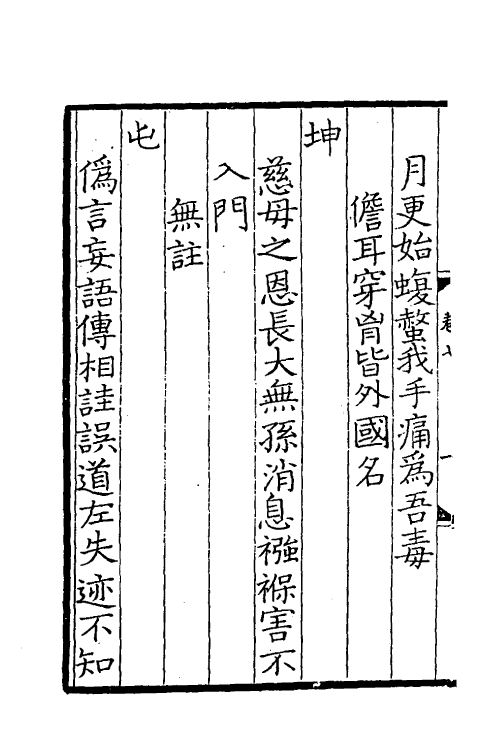 卷七
一
月更始蝮螫我手痛爲吾毒
儋耳穿胷皆外國名
坤
慈母之恩長大無孫消息襁褓害不
入門
無註
屯
僞言妄語傳相詿誤道左失迹不知